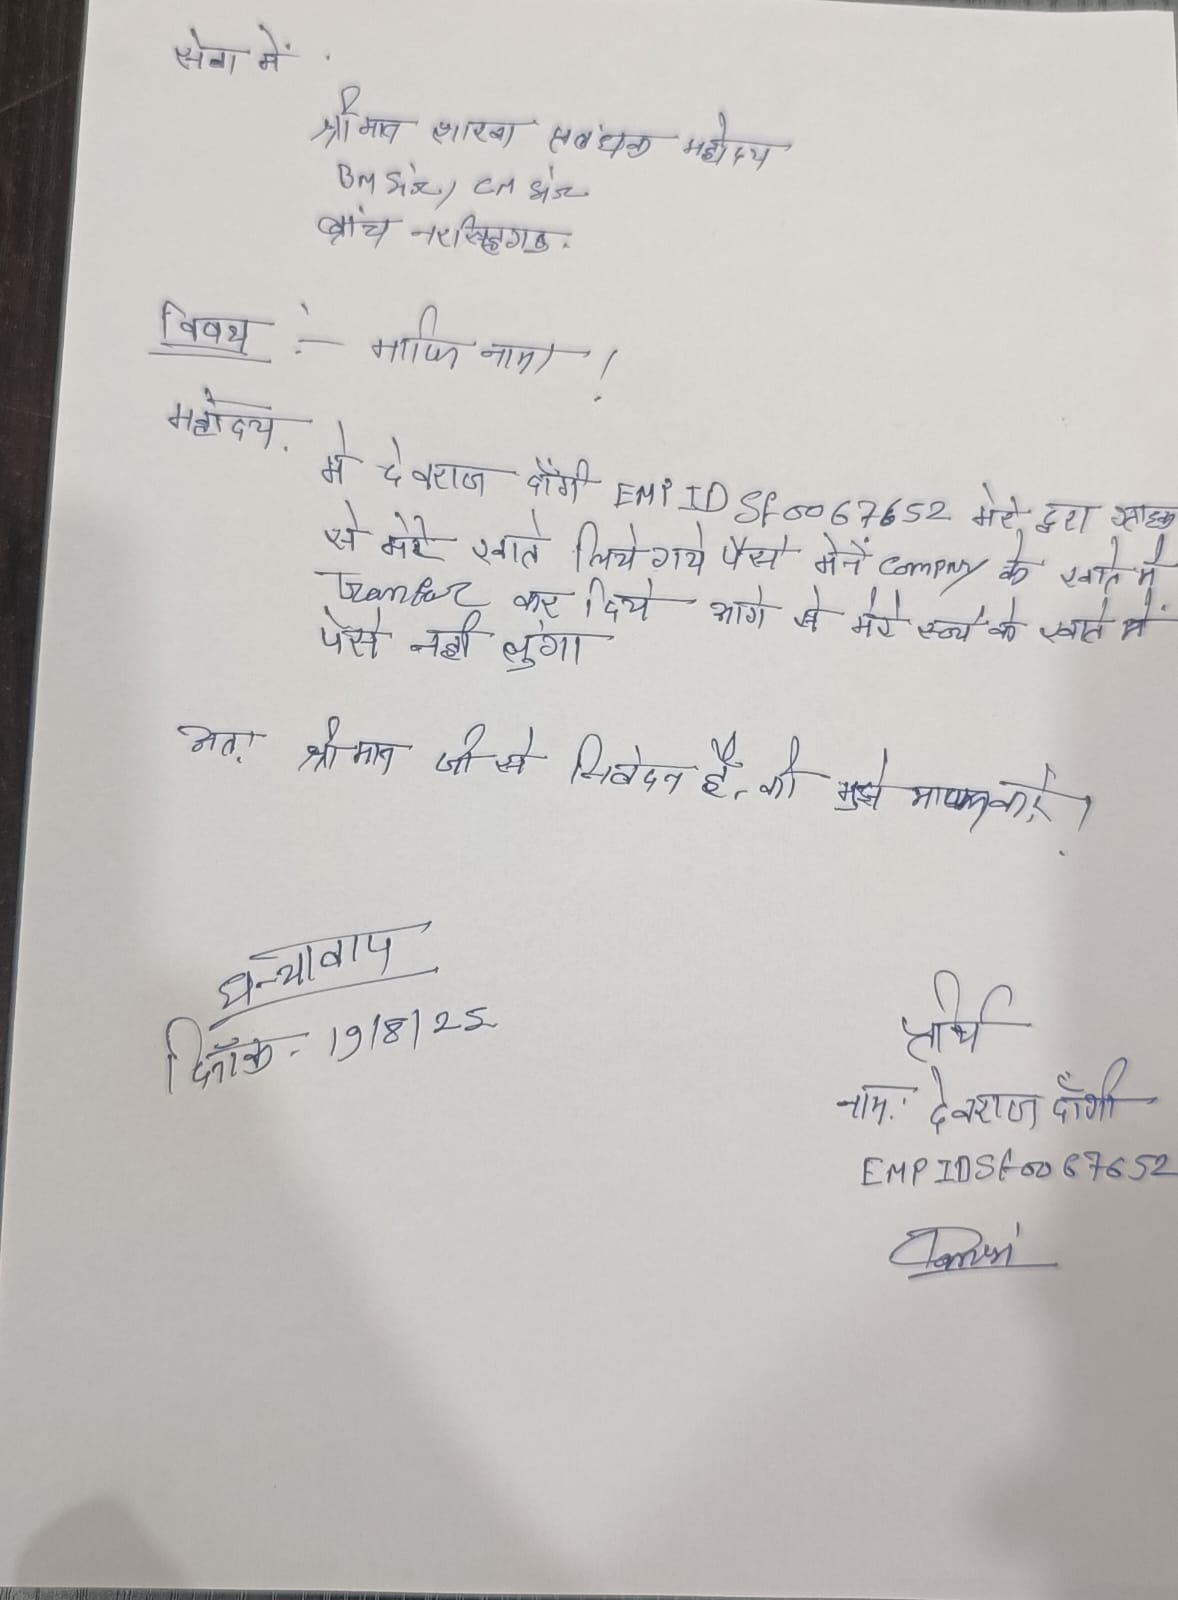 सेवा में
श्रीमान शाखा प्रबंधक महोदय
BM सेंल, CM सेंल
ब्रांच नरसिंहगढ़.
विषय :- माफि नामा !
महोदय.
मे देवराज दाँगी EMP ID Sf0067652 मेरे द्वरा ग्राहक
से मेरे खाते लिये गये पैसे मेनें Company के खाते मे
Transfer कर दिये आगे से मेरे स्वयं के खाते में
पेसे नही लुंगा
अत: श्रीमान जी से निवेदन है, की मुझे माफ करें !
धन्यावाद
दिनाँक - 19/8/25
प्रार्थी
नाम: देवराज दाँगी
EMP ID Sf0067652